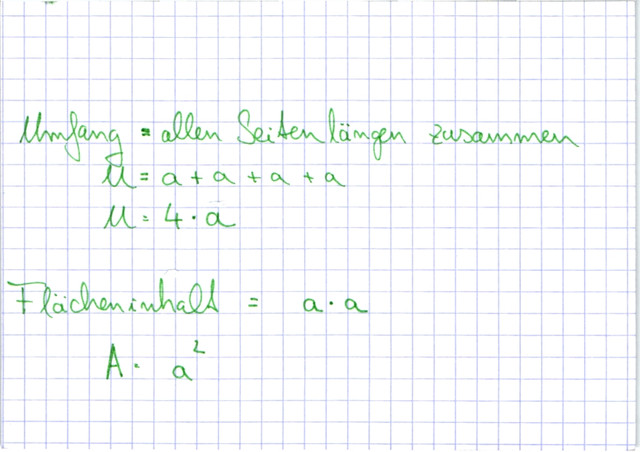 Umfang = allen Seitenlängen zusammen
U = a + a + a + a
U = 4 · a
Flächeninhalt = a · a
A = a²